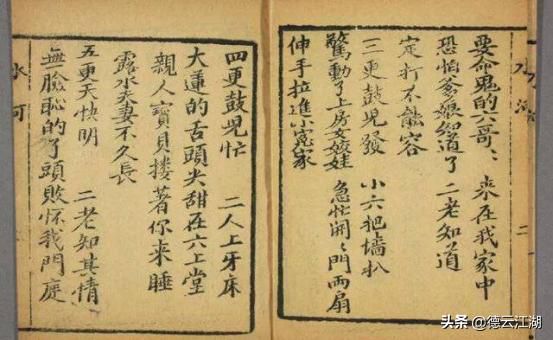 要命鬼的六哥〻 来在我家中
恐怕爹娘知道了 二老知道
定打不能容
三更鼓児發 小六把墻扒
驚動了上房女姣娃 急忙開〻門兩扇
伸手拉進小冤家
二
四更鼓児忙 二人上牙床
大蓮的舌頭尖甜在六上堂
親人寳貝摟著你来睡
露水夫妻不久長
五更天快明 二老知其情
無臉恥的丫頭敗怀我門庭
水河
头条 @德云江湖